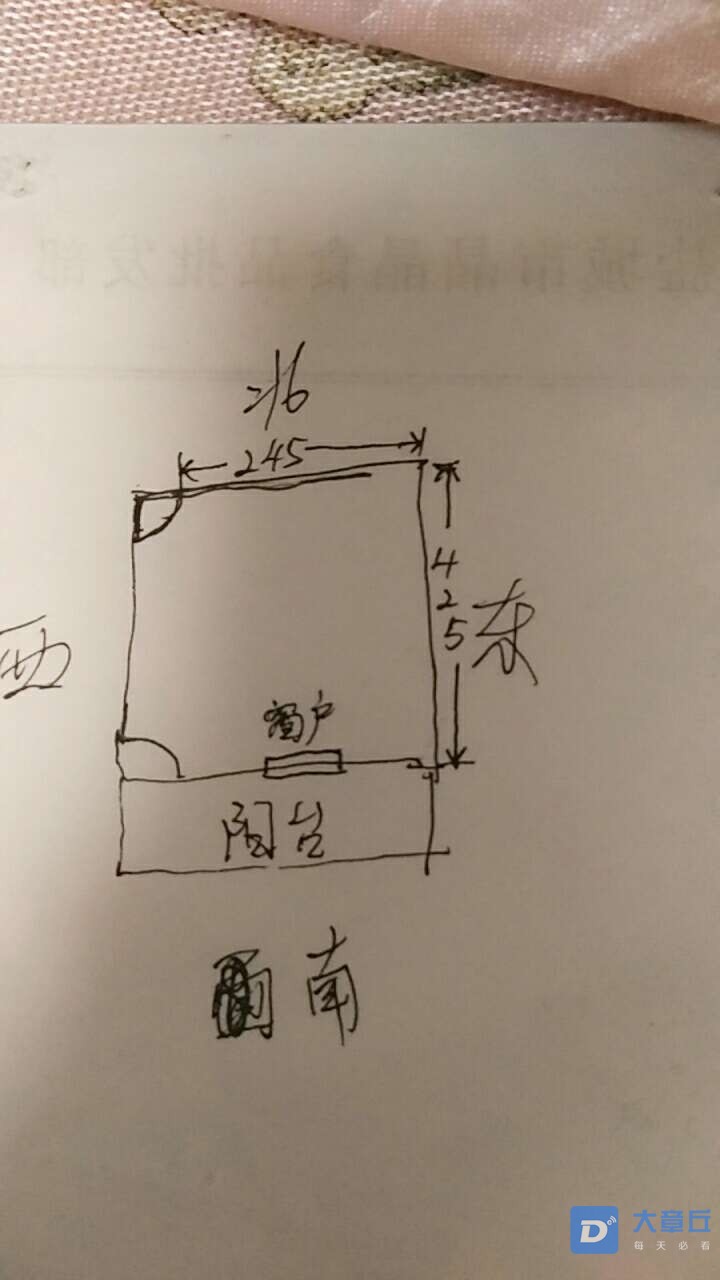 北
245
425
东
西
窗户
阳台
南
大章丘
每天必看